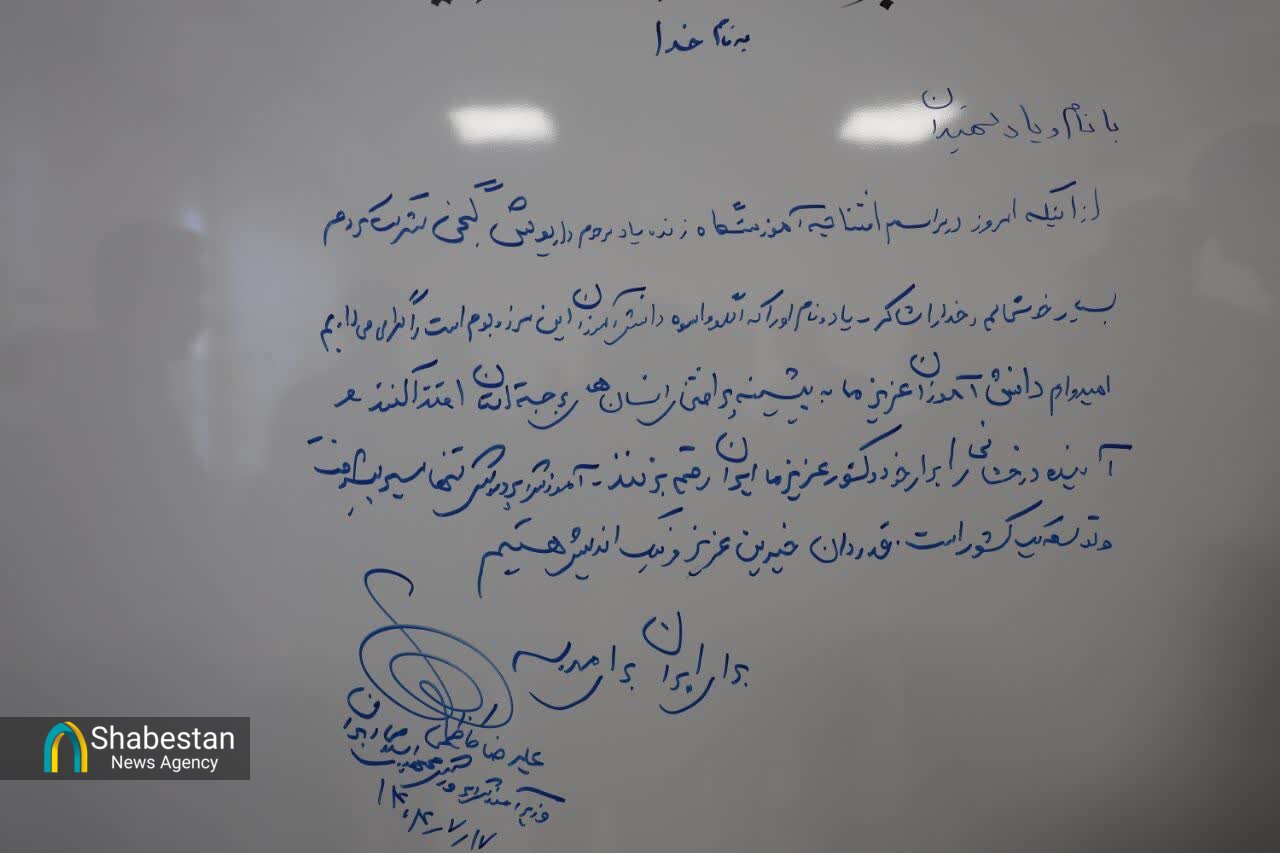 به نام خدا
با نام و یاد شهیدان
از اینکه امروز در مراسم افتتاحیه آموزشگاه زنده یاد مرحوم داریوش گلچین شرکت کردم
بسیار خوشحالم و خدا را شاکر - یاد و نام او را که الگو و اسوه دانش آموزان این مرز و بوم است را گرامی می داریم
امیدوارم دانش آموزان عزیز ما به پیشینه پر افتخار انسان های برجسته استان اقتدا کنند و
آینده درخشانی را برای خود و کشور عزیز ما ایران رقم بزنند - آموزش و پرورش تنها مسیر پیشرفت
و توسعه یک کشور است. قدردان خیرین عزیز و نیک اندیش هستیم
برای ایران برای مدرسه
علیرضا کاظمی
وزیر آموزش و پرورش جمهوری اسلامی ایران
۱۴۰۴/۷/۱۷
Shabestan
News Agency